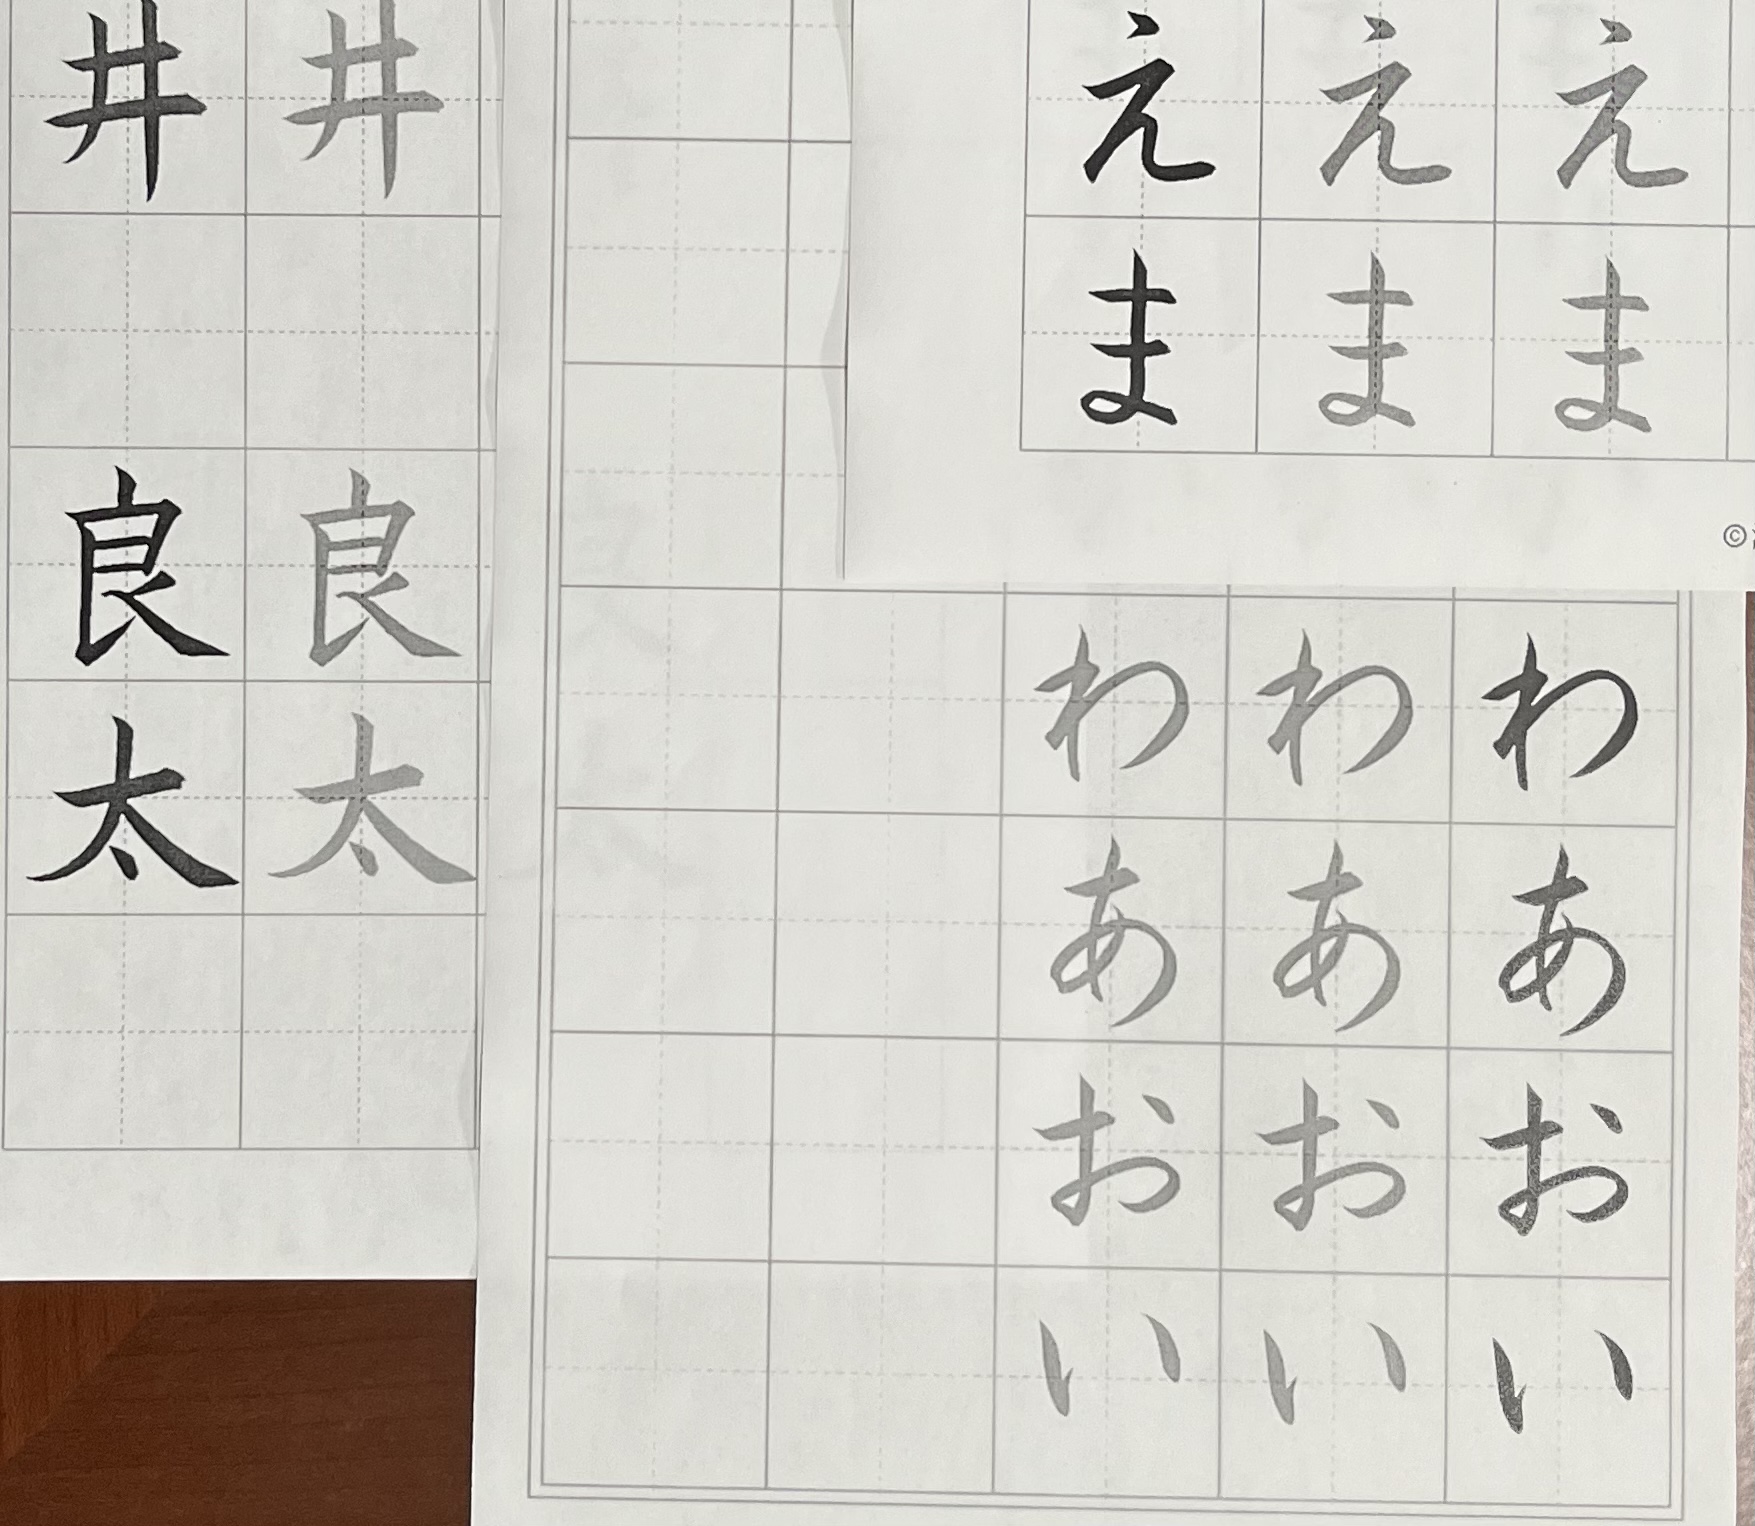 井 良太
井 良太
えま
えま
えま
©
わあおい
わあおい
わあおい